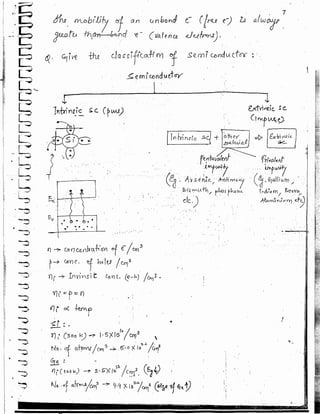 7
The mobility of an unbond e⁻ (free e⁻) is always
greater than bond e⁻ (valence electrons).
Q. Give the classification of semiconductor :
Semiconductor
Intrinsic SC (pure)
Extrinsic SC
(impure)
Si
Intrinsic SC + other material ⇒ Extrinsic SC
Pentavalent impurity
Trivalent impurity
(Eg. Arsenic, Antimony
Bismuth, phosphorus
etc.)
(Eg. Gallium,
Indium, Boron,
Aluminium etc)
Ec
Ev
n → concentration of e⁻/cm³
p → conc. of holes /cm³
ni → Inrinsic conc. (e-h) /cm³.
ni = p = n
ni ∝ temp
SI :-
ni (300 k) → 1.5×10¹⁰/cm³
No. of atoms/cm³ → 5.0×10²²/cm³
Ge :
ni (300k) → 2.5×10¹³/cm³
No. of atoms/cm³ → 4.4×10²²/cm³